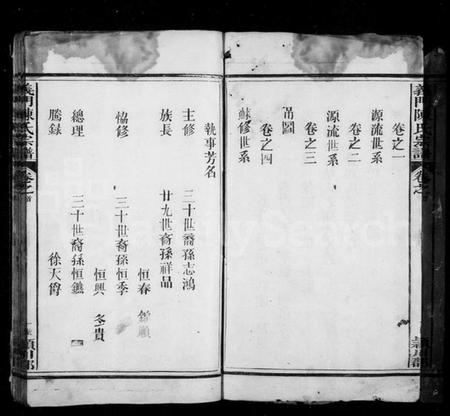 義門陳氏宗譜
卷之首
潁川郡
卷之一
源流世系
卷之二
源流世系
卷之三
吊圖
卷之四
蘇修世系
執事芳名
主修 三十世裔孫志鴻
族長 廿九世裔孫祥品
恒春
協修 三十世裔孫恒季
恒興 冬貴
總理 三十世裔孫恒
謄錄 徐天爵
義門陳氏宗譜
卷之首
潁川郡